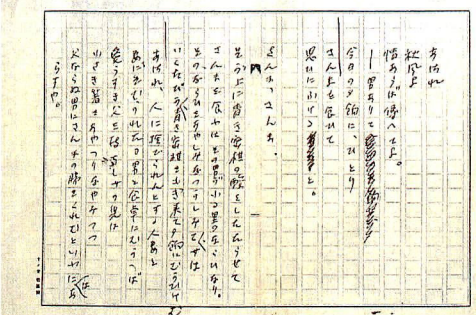 あはれ
秋風よ
情あらば傳へてよ
――男ありて
今日の夕餉に、ひとり
さんまを食ひて
思ひにふける と。
さんま、さんま、
そが上に青き蜜柑の酸をしたたらせて
さんまを食ふはその男がふる里のならひなり。
そのならひをあやしみなつかしみて女は
いくたびか青き蜜柑をもぎ来て夕餉にむかひけむ。
あはれ、人に捨てられんとする人妻と
妻にそむかれたる男と食卓にむかへば
愛うすき父を持ちし女の児は
小さき箸をあやつりなやみつつ
父ならぬ男にさんまの腸をくれむといふにあ
らずや。